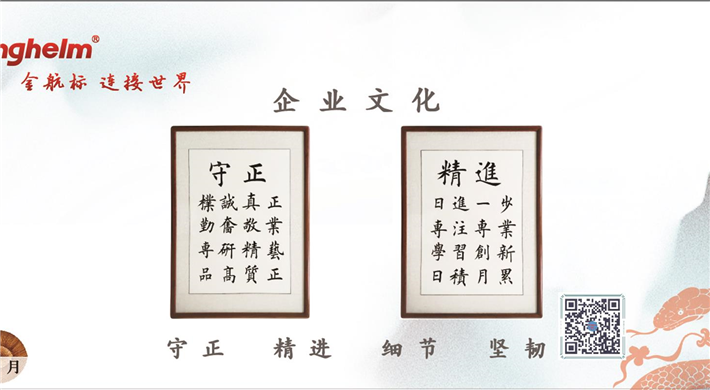 nghelm®
金航标 连接世界
企业文化
守正
樸誠真正
勤奮敬業
専研精藝
品高質正
精進
日進一步
専注専業
學習創新
日積月累
守正 精进 细节 坚韧
月